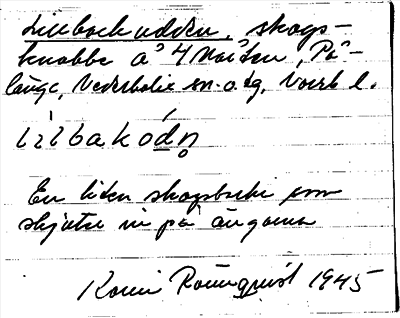 Lillbackudden, skogs-
knabbe å 4 Mårten, På-
länge, Nederkalix sn. o. tg, Norrb l.
lìlbakódn̥
En liten skogsbacke som
skjuter in på ängarna
Rönnqvist 1945